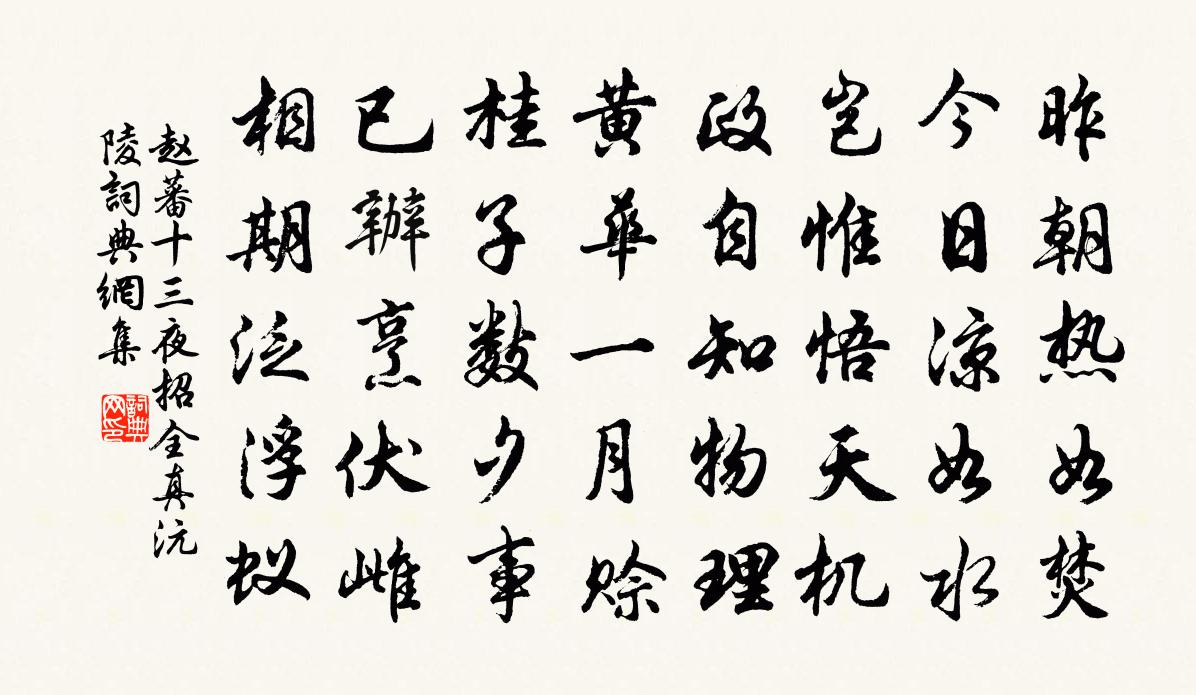 昨朝热如焚
今日凉如水
岂惟悟天机
政自知物理
黄华一月赊
桂子数夕事
已办烹伏雌
相期泛浮蚁
赵蕃十三夜招全真沅
陵詞典網集
詞典网印